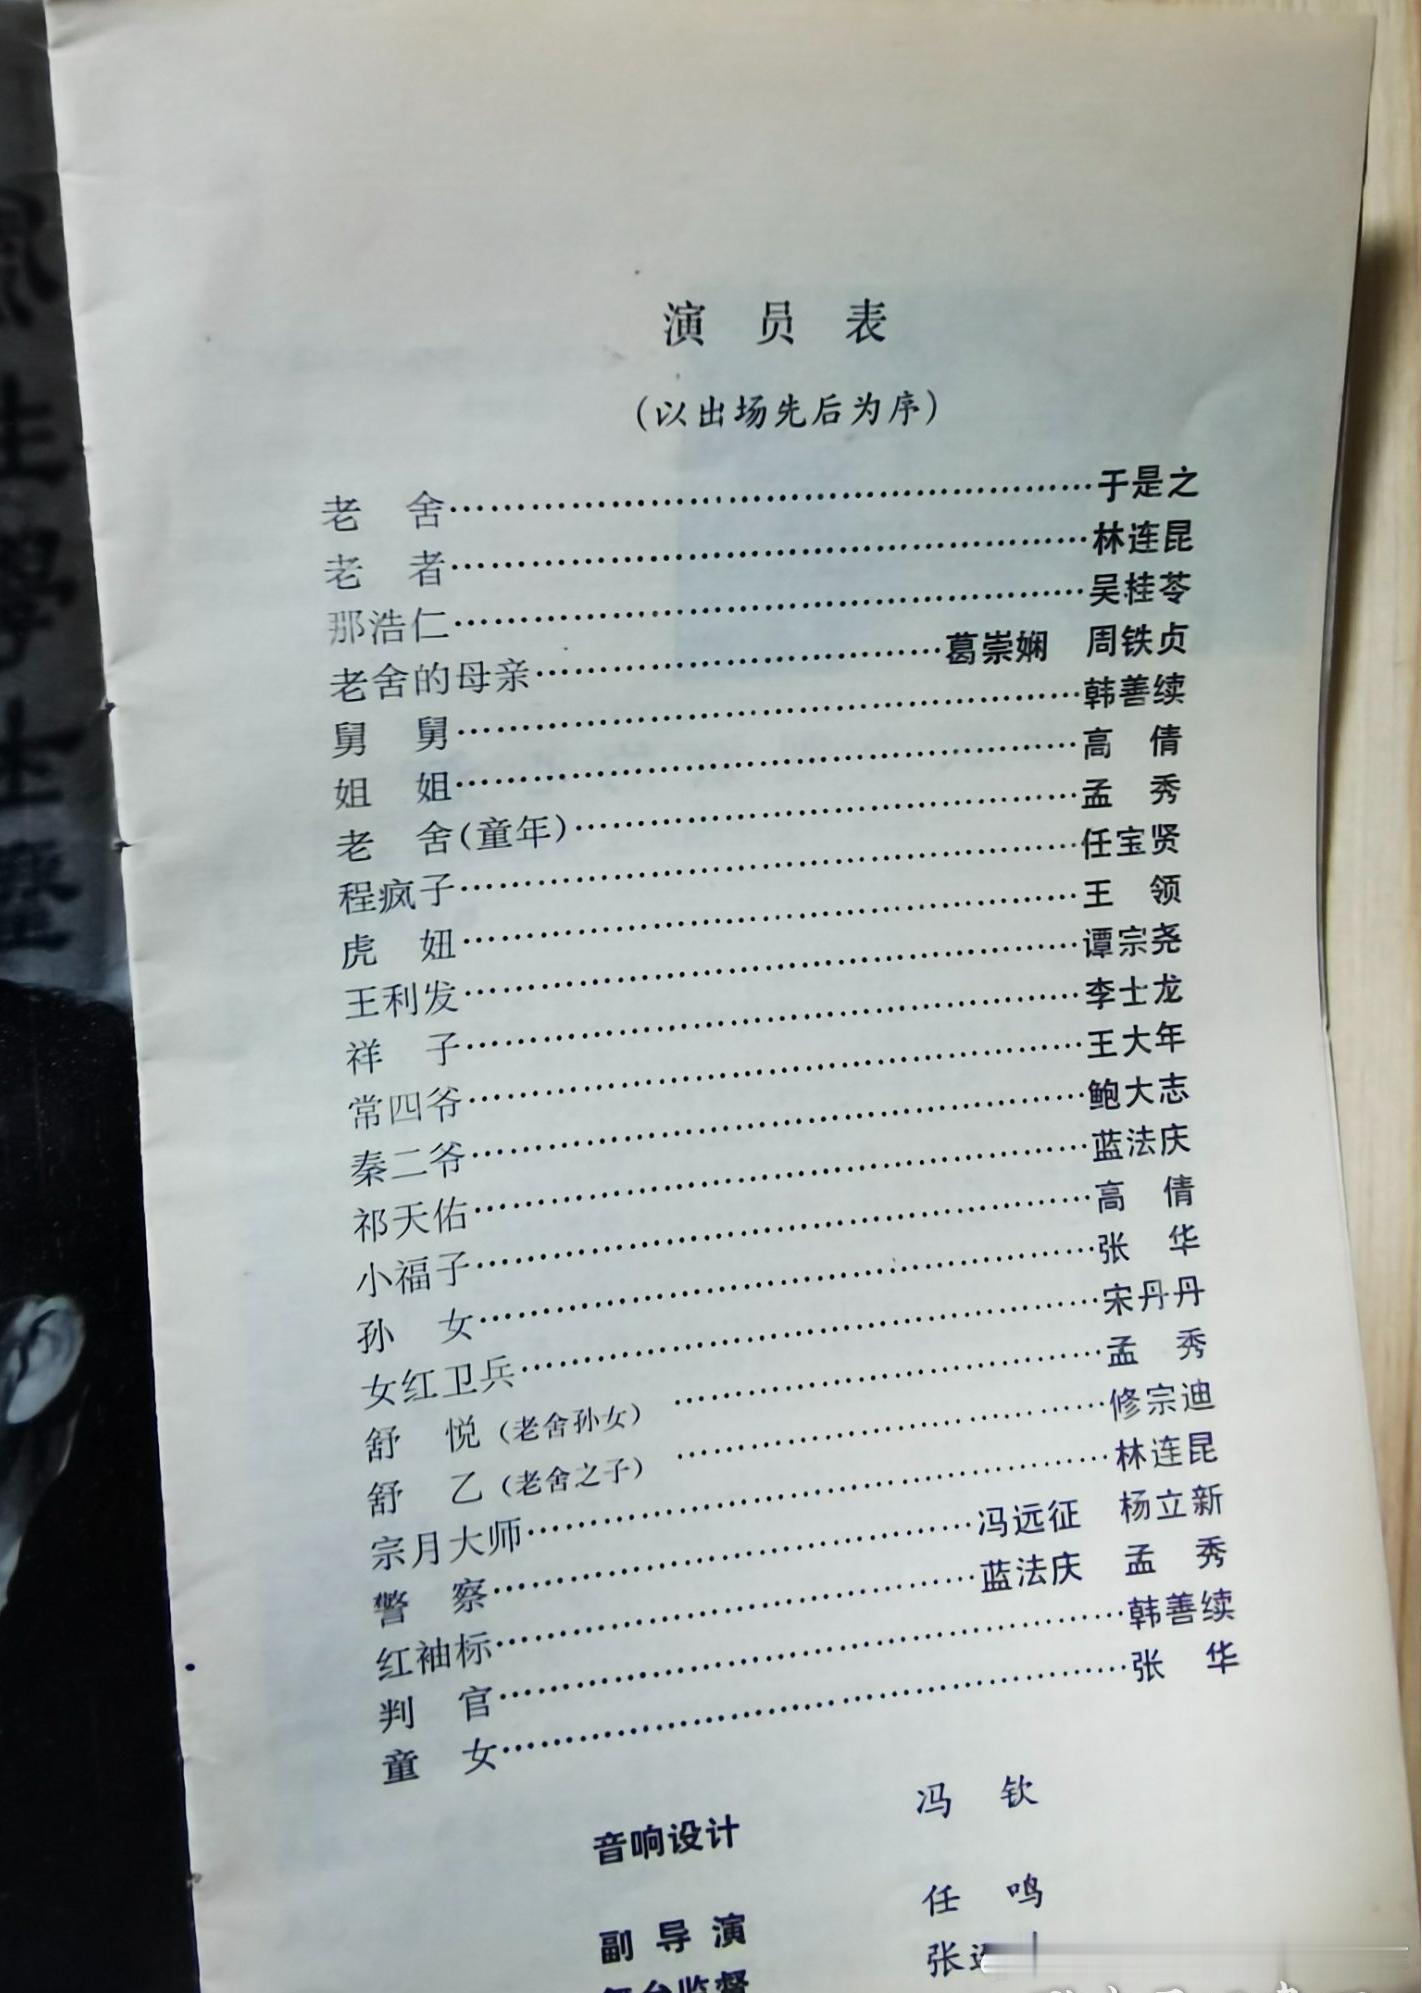 演 员 表
(以出场先后为序)
老 舍……于是之
老 者……林连昆
那浩仁……吴桂苓
老舍的母亲……葛崇娴 周铁贞
舅 舅……韩善续
姐 姐……高 倩
老 舍(童年)……孟 秀
程疯子……任宝贤
虎 妞……王 领
王利发……谭宗尧
祥 子……李士龙
常四爷……王大年
秦二爷……鲍大志
祁天佑……蓝法庆
小福子……高 倩
孙 女……张 华
女红卫兵……宋丹丹
舒 悦(老舍孙女)……孟 秀
舒 乙(老舍之子)……修宗迪
宗月大师……林连昆
警 察……冯远征 杨立新
红袖标……蓝法庆 孟 秀
判 官……韩善续
童 女……张 华
音响设计 冯 钦
副 导 演 任 鸣
舞台监督 张